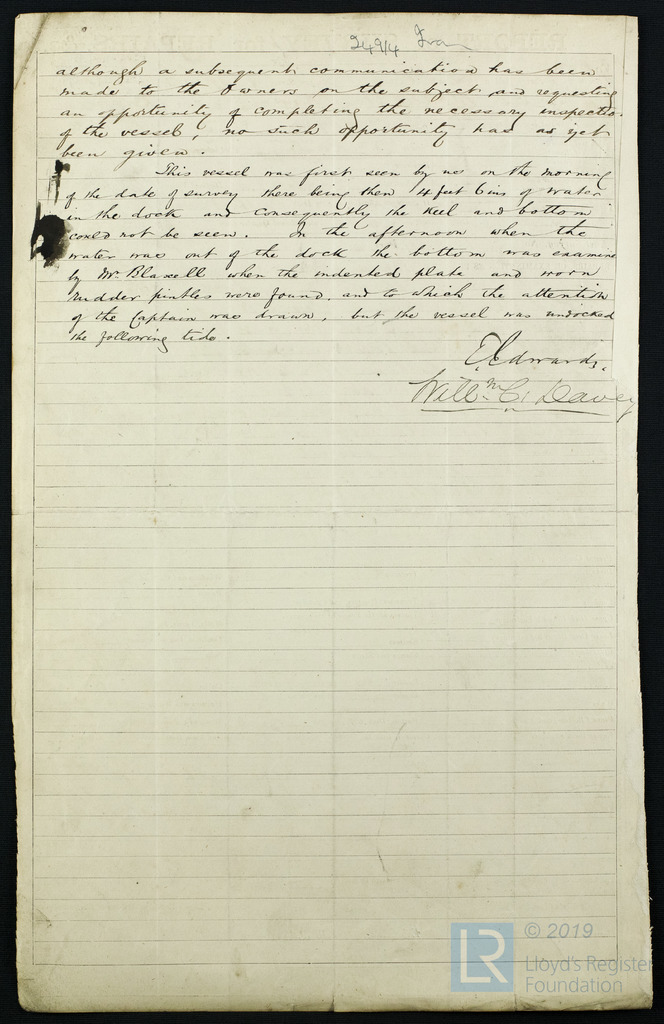 24914 Iron
although a subsequent communication has been
made to the Owners on the subject and requesting
an opportunity of completing the necessary inspectio
of the vessel, no such opportunity has as yet
been given.
This vessel was first seen by us on the morning
of the date of survey there being then 4 feet 6 ins of water
in the dock and consequently the keel and bottom
could not be seen. In the afternoon when the
water was out of the dock the bottom was examine
by Mr. Blaxell when the indented plate and worn
rudder pintles were found, and to which the attention
of the Captain was drawn, but the vessel was undocked
the following tide.
Edwards.
Willm. C. Davey
LR © 2019
Lloyd's Register
Foundation